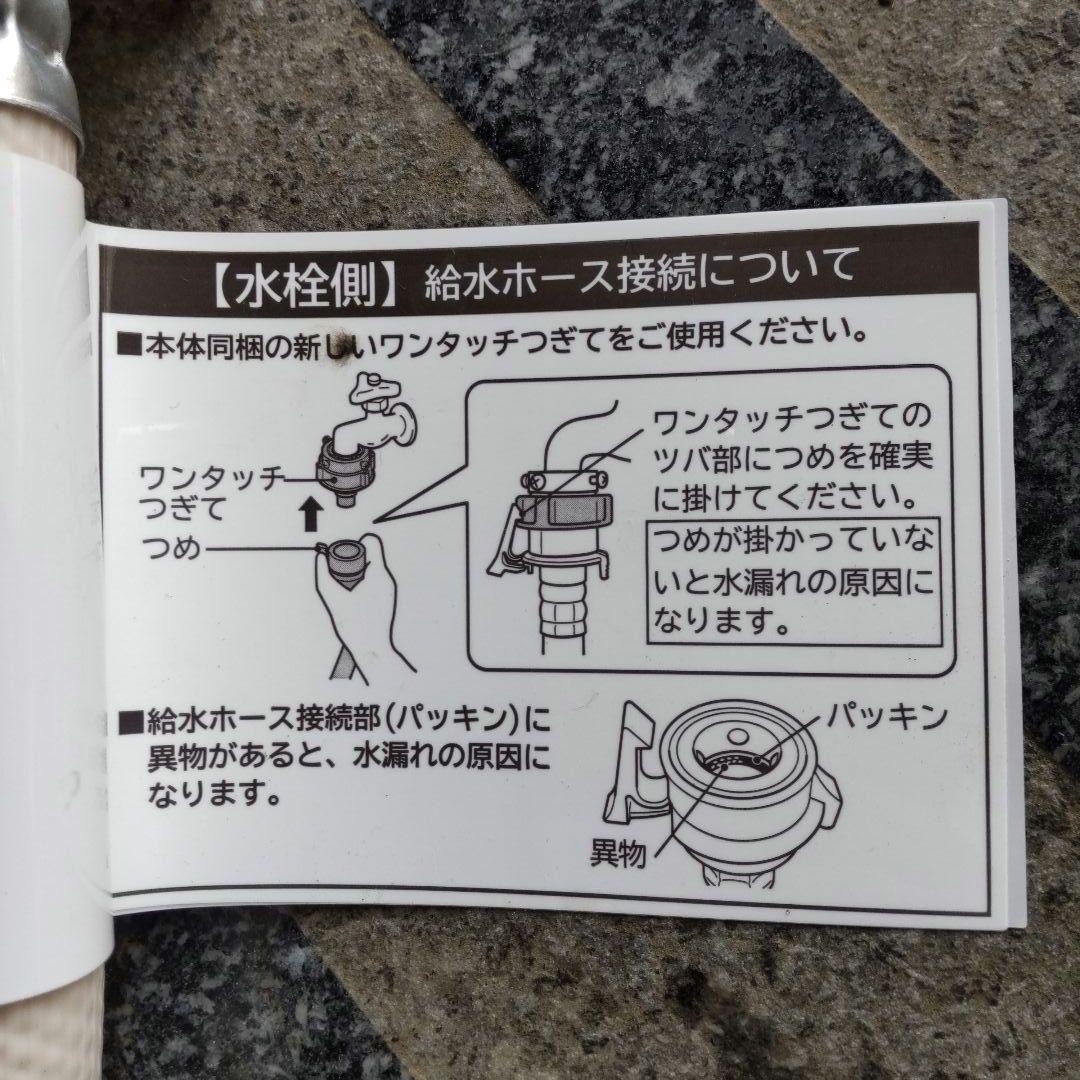 【水栓側】給水ホース接続について
■本体同梱の新しいワンタッチつぎてをご使用ください。
ワンタッチ
つぎて
つめ
ワンタッチつぎての
ツバ部につめを確実
に掛けてください。
つめが掛かっていな
いと水漏れの原因に
なります。
■給水ホース接続部(パッキン)に
異物があると、水漏れの原因に
なります。
パッキン
異物